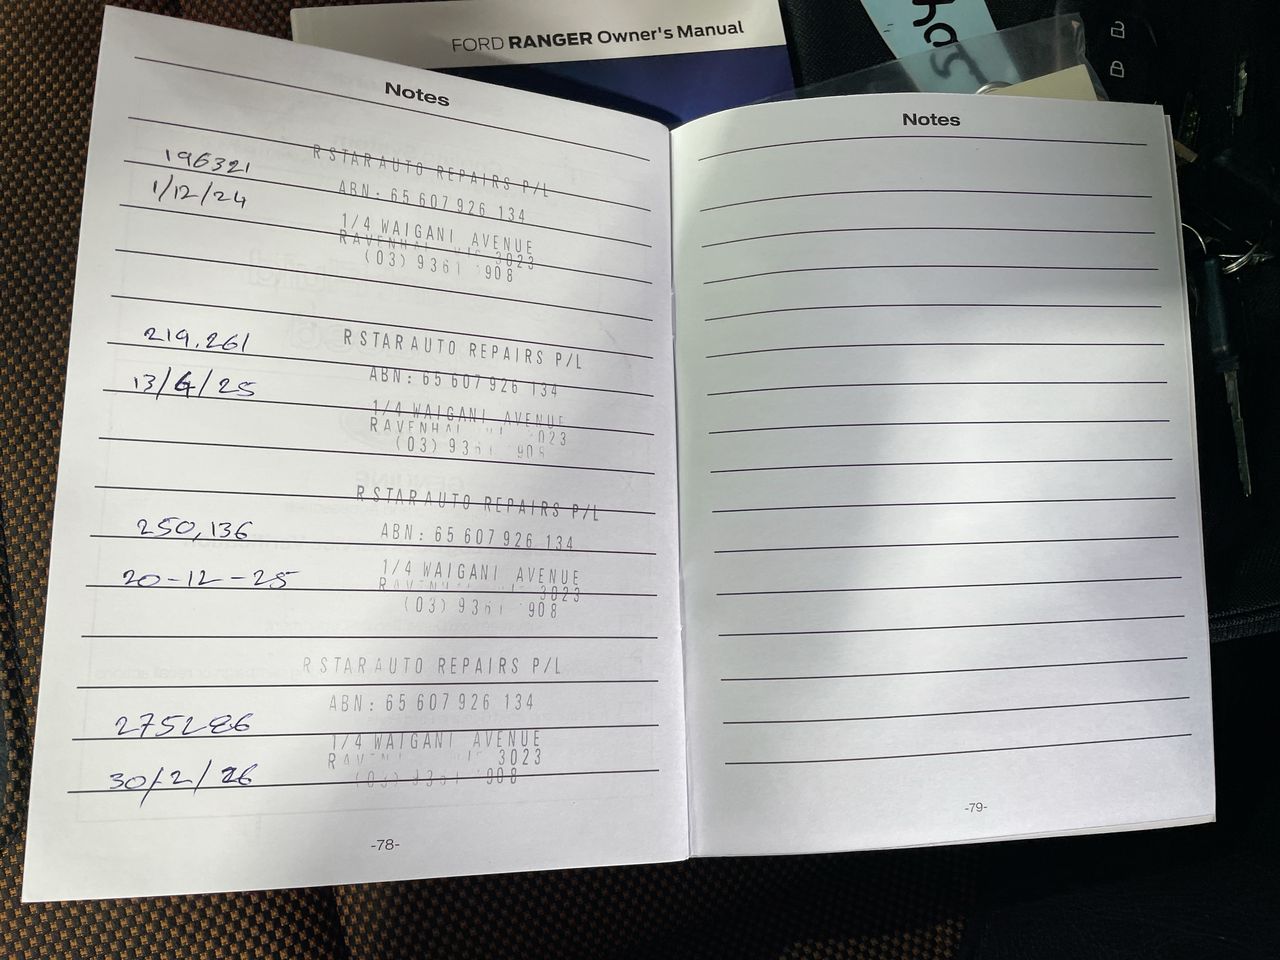 FORD RANGER Owner's Manual
Notes
196321
1/12/24
R STAR AUTO REPAIRS P/L
ABN: 65 607 926 134
1/4 WAIGANI AVENUE
3023
(03) 9361 908
219,261
13/6/25
R STAR AUTO REPAIRS P/L
ABN: 65 607 926 134
1/4 WAIGANI AVENUE
023
(03) 93 908
250,136
20-12-25
R STAR AUTO REPAIRS P/L
ABN: 65 607 926 134
1/4 WAIGANI AVENUE
3023
(03) 936 908
R STAR AUTO REPAIRS P/L
ABN: 65 607 926 134
275286
1/4 WAIGANI AVENUE
3023
30/2/26
908
-78-
Notes
-79-